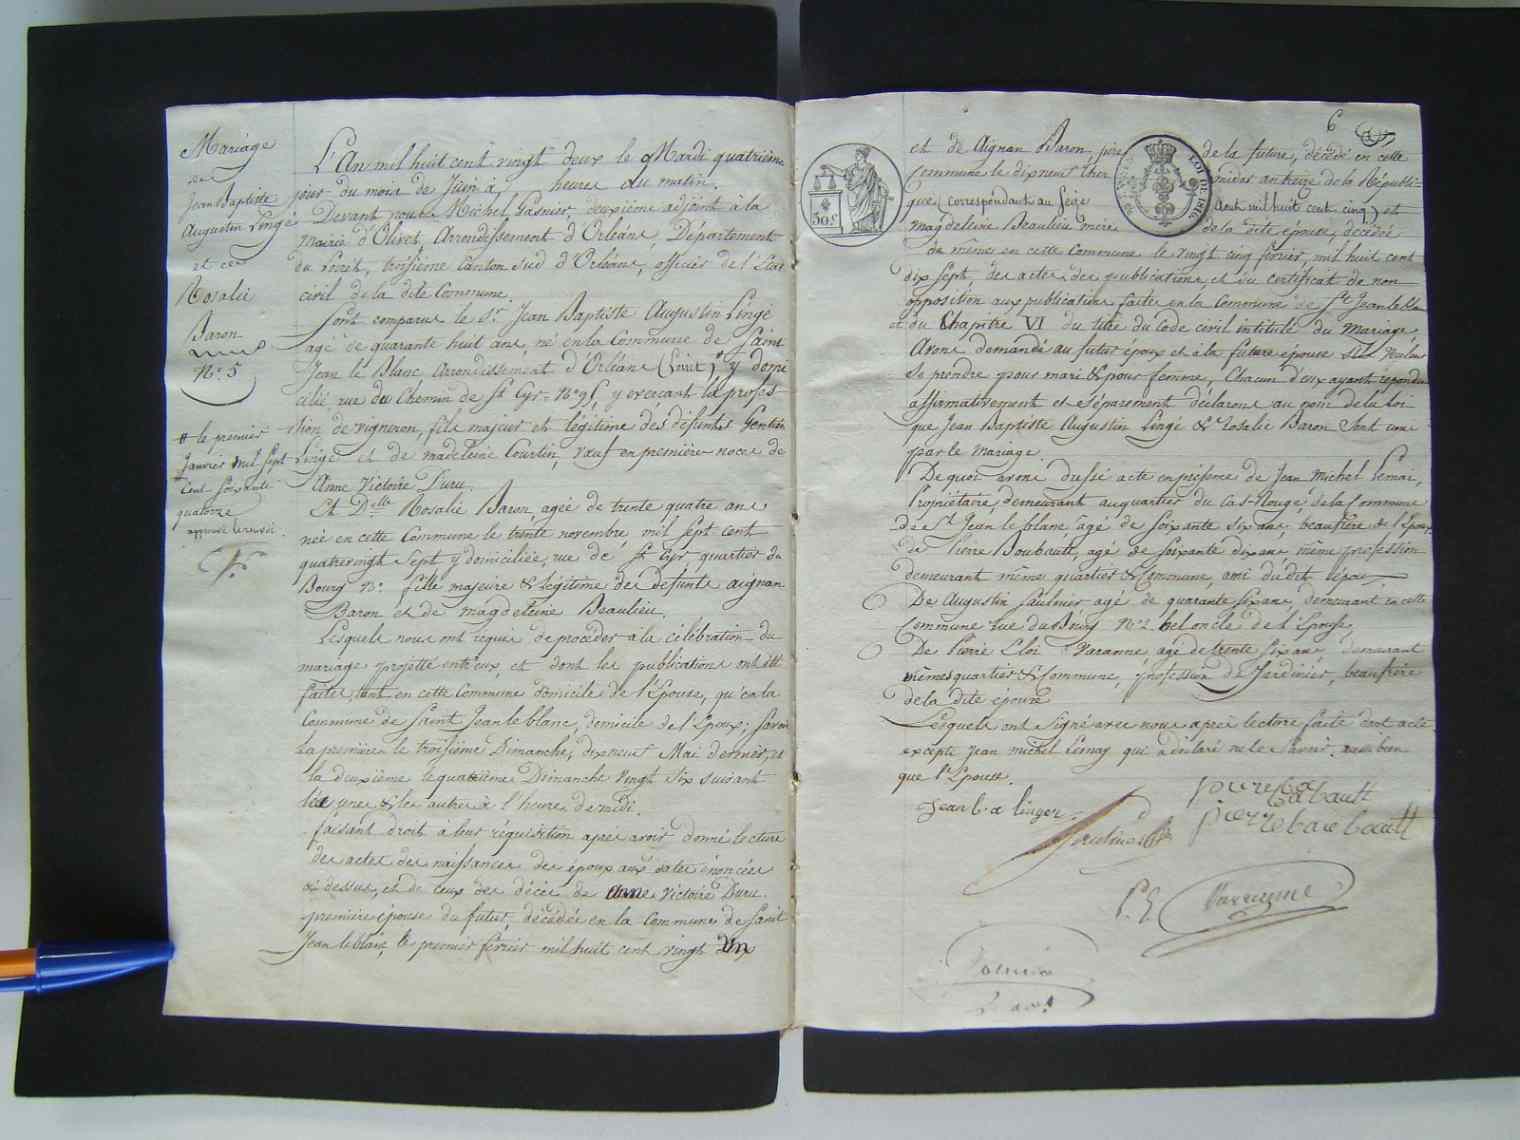 Mariage
de
Jean Baptiste
Augustin Lingé
et de
Rosalie
Baron
N° 5
# le premier
Janvier mil sept
cent soixante
quatorze
L'An mil huit cent vingt deux le Mardi quatrième
jour du mois de Juin à heures du matin.
Devant nous Michel Gasnier, deuxième adjoint à la
Mairie d'Olivet, Arrondissement d'Orléans, Département
du Loiret, troisième Canton sud d'Orléans, officier de l'Etat
civil de la dite Commune.
Sont comparus le Sr. Jean Baptiste Augustin Lingé
agé de quarante huit ans, né en la Commune de Saint
Jean le Blanc arondissement d'Orléans (Loiret) # y domi
cilié rue du Chemin de St Cyr N° 95 y exerçant la profes-
sion de vigneron, fils majeur et légitime des défunts Gentien
Lingé et de madeleine Courtin, veuf en première noces de
Anne Victoire Duru.
Et Delle Rosalie Baron agée de trente quatre ans
née en cette Commune le trente novembre mil sept cent
quatrevingt sept y domiciliée, rue de St Cyr quartier du
Bourg N° fille majeure & légitime des défunts aignan
Baron et de magdeleine Beaulieu.
Lesquels nous ont requis de procéder à la célébration du
mariage projetté entr'eux, et dont les publications ont été
faites, tant en cette Commune domicile de l'Epouse, qu'en la
Commune de Saint Jean le blanc, domicile de l'Epoux; savoir
la première le troisième Dimanche, dix neuf Mai dernier, et
la deuxième le quatrième Dimanche vingt six suivant
les unes & les autres à l'heure de midi.
faisant droit à leur réquisition après avoir donné lecture
des actes des naissances des époux aux dates énoncées
ci dessus, et de ceux des décès de Anne Victoire Duru
première épouse du futur, décédée en la Commune de Saint
Jean le blanc, le premier février mil huit cent vingt un
6
30 c
LOI DE 1816
et de Aignan Baron, père de la future, décédé en cette
Commune le dix neuf thermidor an treize de la Républi-
que (correspondant au sept Aout mil huit cent cinq) et
magdeleine Beaulieu mère de la dite épouse, décédée
de même en cette Commune le vingt cinq février, mil huit cent
dix sept, des actes des publications et du certificat de non
opposition aux publications faites en la Commune de St Jean le bla
et du Chapitre VI du titre du Code civil intitulé du Mariage,
Avons demandé au futur époux et à la future épouse s'ils veulent
se prendre pour mari & pour femme, Chacun d'eux ayant répondu
affirmativement et séparément déclarons au nom de la Loi
que Jean Baptiste Augustin Lingé & Rosalie Baron sont unis
par le Mariage.
De quoi avons dressé acte en présence de Jean Michel Lemai,
Propriétaire, demeurant au quartier du Cas-Rouge, de la Commune
de St Jean le blanc agé de soixante six ans, beaufrère de l'Epoux
de Pierre Boubault, agé de soixante dix ans même profession
demeurant même quartier & Commune, ami du dit époux
De Augustin Saulnier agé de quarante six ans demeurant en cette
Commune rue N° 2 bel oncle de l'Epouse,
De Pierre Eloi Varanne, agé de trente six ans, demeurant
mêmes quartier & Commune, profession de Jardinier, beaufrère
de la dite épouse
Lesquels ont signé avec nous après lecture faite dont acte
excepté Jean michel Lemay qui a déclaré ne le savoir, aussi bien
que l'Epouse.
Jean b. a linger
pierre
pierre boubault
P. E Varanne